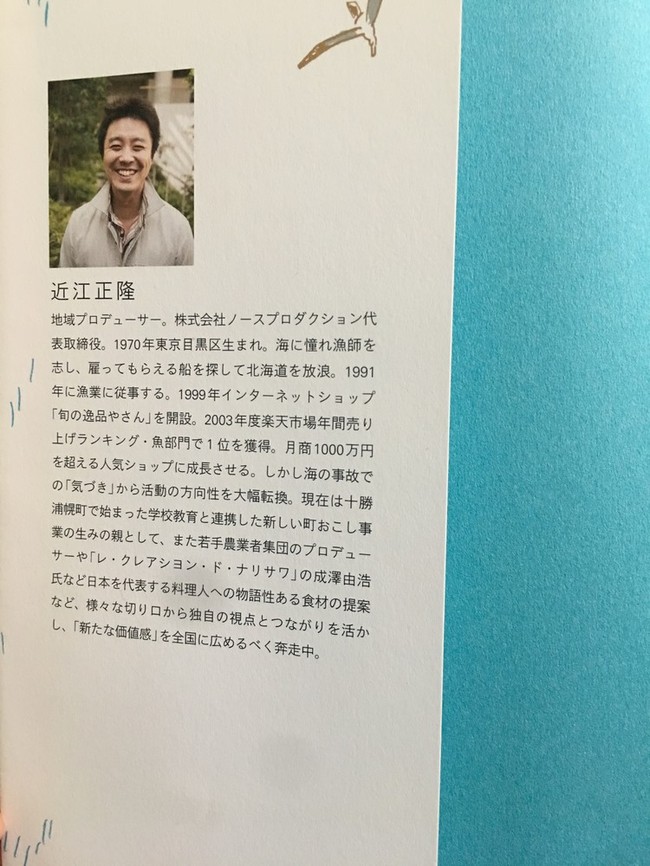 近江正隆
地域プロデューサー。株式会社ノースプロダクション代
表取締役。1970年東京目黒区生まれ。海に憧れ漁師を
志し、雇ってもらえる船を探して北海道を放浪。1991
年に漁業に従事する。1999年インターネットショップ
「旬の逸品やさん」を開設。2003年度楽天市場年間売り
上げランキング・魚部門で1位を獲得。月商1000万円
を超える人気ショップに成長させる。しかし海の事故で
の「気づき」から活動の方向性を大幅転換。現在は十勝
浦幌町で始まった学校教育と連携した新しい町おこし事
業の生みの親として、また若手農業者集団のプロデュー
サーや「レ・クレアシヨン・ド・ナリサワ」の成澤由浩
氏など日本を代表する料理人への物語性ある食材の提案
など、様々な切り口から独自の視点とつながりを活か
し、「新たな価値感」を全国に広めるべく奔走中。